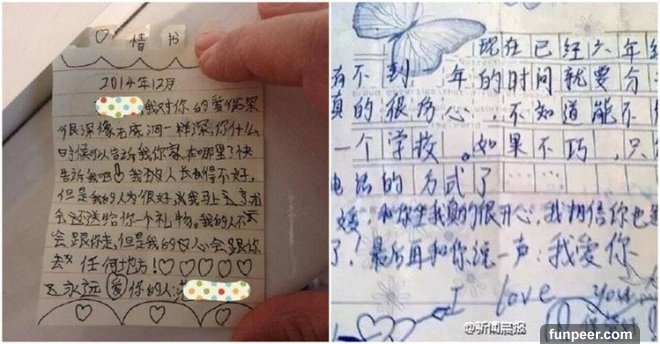 ♡情书
2014年12月
我对你的爱很深
很深像无底洞一样深,你什么
时候可以告诉我你家在哪里?快
告诉我吧!我的人长得不好,
但是我的人为很好,
会还送给你一个礼物。我的人不
会跟你走,但是我的心会跟你
去任何地方!♡♡♡♡♡
永远爱你的人:
现在已经六年
有不到 年的时间就要分
真的很伤心,不知道能不
一个学校。如果不巧,只
电话的方式了
和你坐我真的很开心,我相信你也
了!最后再和你说一声:我爱你
I love you
@新闻晨报
funpeer.com